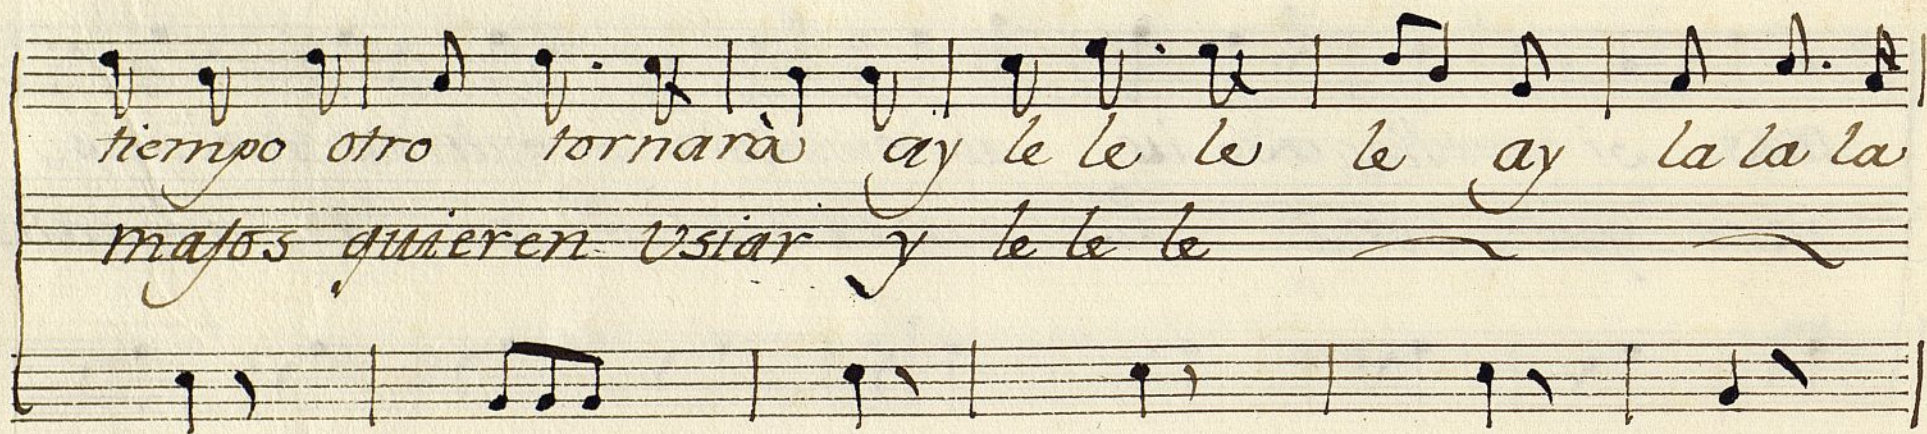 tiempo otro tornarà ay le le le le ay la la la
majos quieren Vsiar y le le le